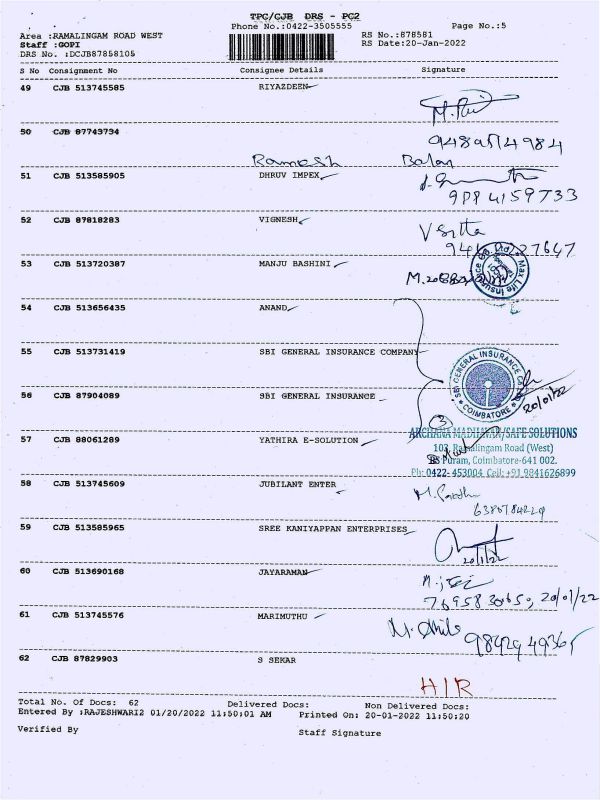 TPC/CJB DRS - PC2
Phone No.:0422-3505555 Page No.:5
Area :RAMALINGAM ROAD WEST RS No.:878581
Staff :GOPI RS Date:20-Jan-2022
DRS No. :DCJB87858105
S No Consignment No Consignee Details Signature
49 CJB 513745585 RIYAZDEEN
50 CJB 87743734
Ramesh Balan
51 CJB 513585905 DHRUV IMPEX
52 CJB 87818283 VIGNESH
53 CJB 513720387 MANJU BASHINI
Max Life Insurance Co. Ltd
54 CJB 513656435 ANAND
55 CJB 513731419 SBI GENERAL INSURANCE COMPANY
SBI GENERAL INSURANCE
COIMBATORE
56 CJB 87904089 SBI GENERAL INSURANCE
20/01/22
57 CJB 88061289 YATHIRA E-SOLUTION
3
ARCHANA MADHAVAN/SAFE SOLUTIONS
103, Ramalingam Road (West)
RS Puram, Coimbatore-641 002.
Ph: 0422- 453004 Cell: +91 9841626899
58 CJB 513745609 JUBILANT ENTER
59 CJB 513585965 SREE KANIYAPPAN ENTERPRISES
20/1/22
60 CJB 513690168 JAYARAMAN
20/01/22
61 CJB 513745576 MARIMUTHU
62 CJB 87829903 S SEKAR
H/R
Total No. Of Docs: 62 Delivered Docs: Non Delivered Docs:
Entered By :RAJESHWARI2 01/20/2022 11:50:01 AM Printed On: 20-01-2022 11:50:20
Verified By Staff Signature